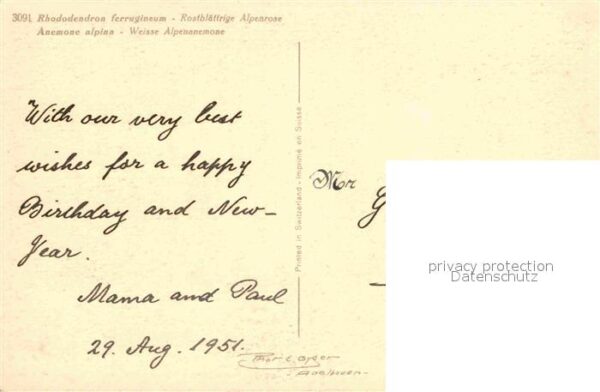 3091 Rhododendron ferrugineum - Rostblättrige Alpenrose
Anemone alpina - Weisse Alpenanemone
With our very best
wishes for a happy
Birthday and New-
Year.
Mama and Paul
29. Aug. 1951.
Printed in Switzerland - Imprimé en Suisse
Mr
G
privacy protection
Datenschutz